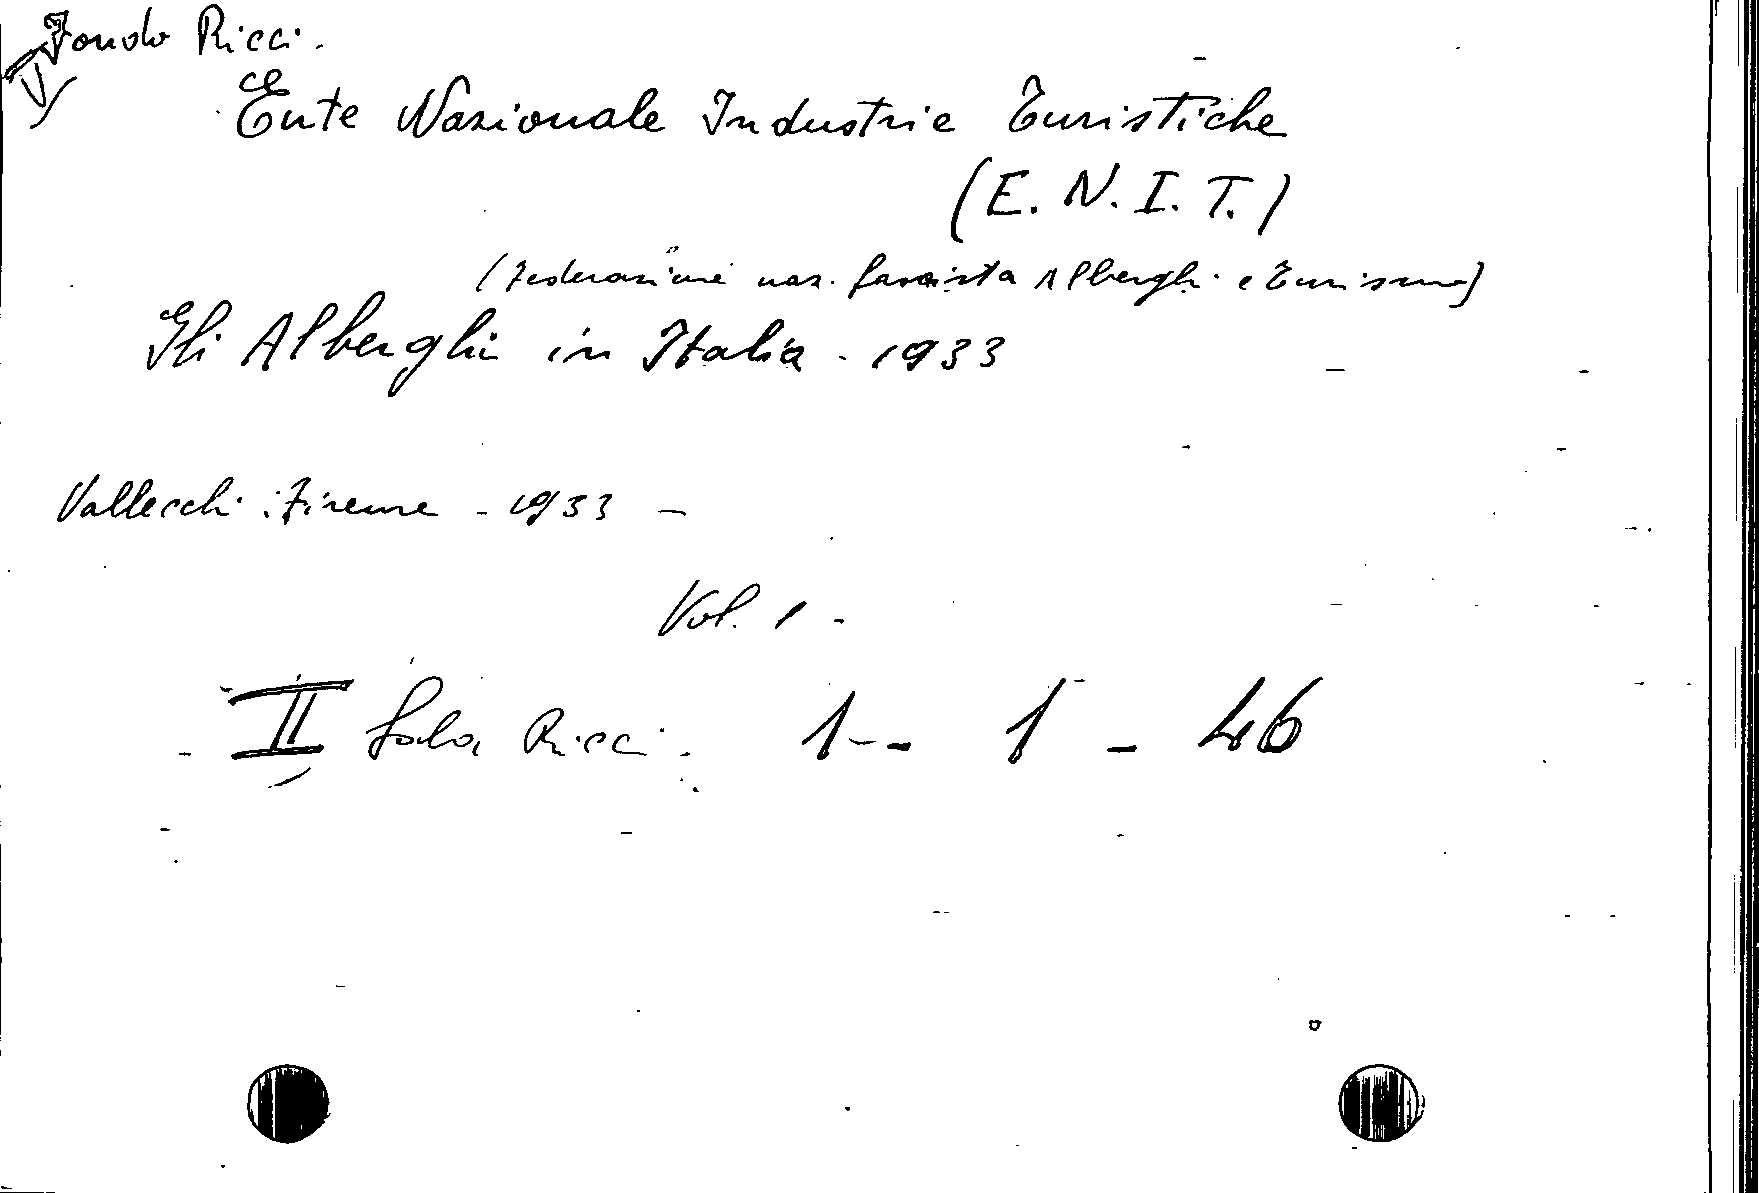 Fondo Ricci.
Ente Nazionale Industrie Turistiche
(E. N. I. T.)
(Federazione naz. fascista Alberghi e Turismo)
Gli Alberghi in Italia - 1933
Vallecchi. Firenze - 1933 -
Vol. 1 -
- II Sala Ricci. 1 - 1 - 46